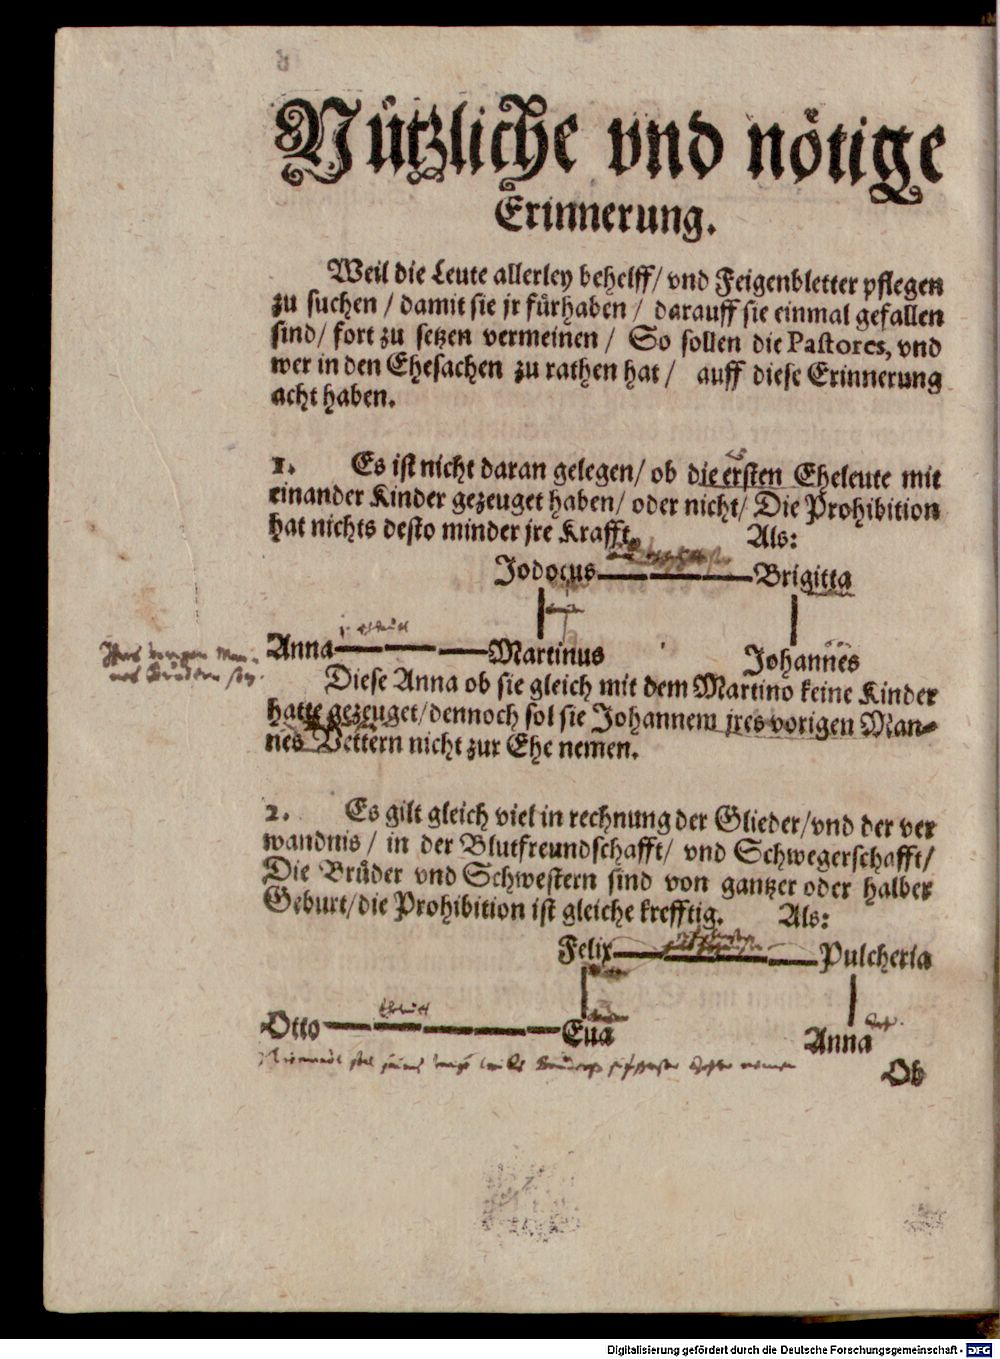 Nützliche vnd nötige
Erinnerung.
Weil die Leute allerley behelff/ vnd Feigenbletter pflegen
zu suchen / damit sie jr fürhaben / darauff sie einmal gefallen
sind/ fort zu setzen vermeinen / So sollen die Pastores, vnd
wer in den Ehesachen zu rathen hat / auff diese Erinnerung
acht haben.
1. Es ist nicht daran gelegen/ ob die ersten Eheleute mit
einander Kinder gezeuget haben/ oder nicht/ Die Prohibition
hat nichts desto minder jre Krafft. Als:
Jodocus Brigitta
Anna Martinus Johannes
Diese Anna ob sie gleich mit dem Martino keine Kinder
hatte gezeuget/dennoch sol sie Johannem jres vorigen Man-
nes Vettern nicht zur Ehe nemen.
2. Es gilt gleich viel in rechnung der Glieder/vnd der ver
wandnis / in der Blutfreundschafft/ vnd Schwegerschafft/
Die Brüder vnd Schwestern sind von gantzer oder halber
Geburt/die Prohibition ist gleiche krefftig. Als:
Felix Pulcheria
Otto Eua Anna
Ob
Digitalisierung gefördert durch die Deutsche Forschungsgemeinschaft - DFG